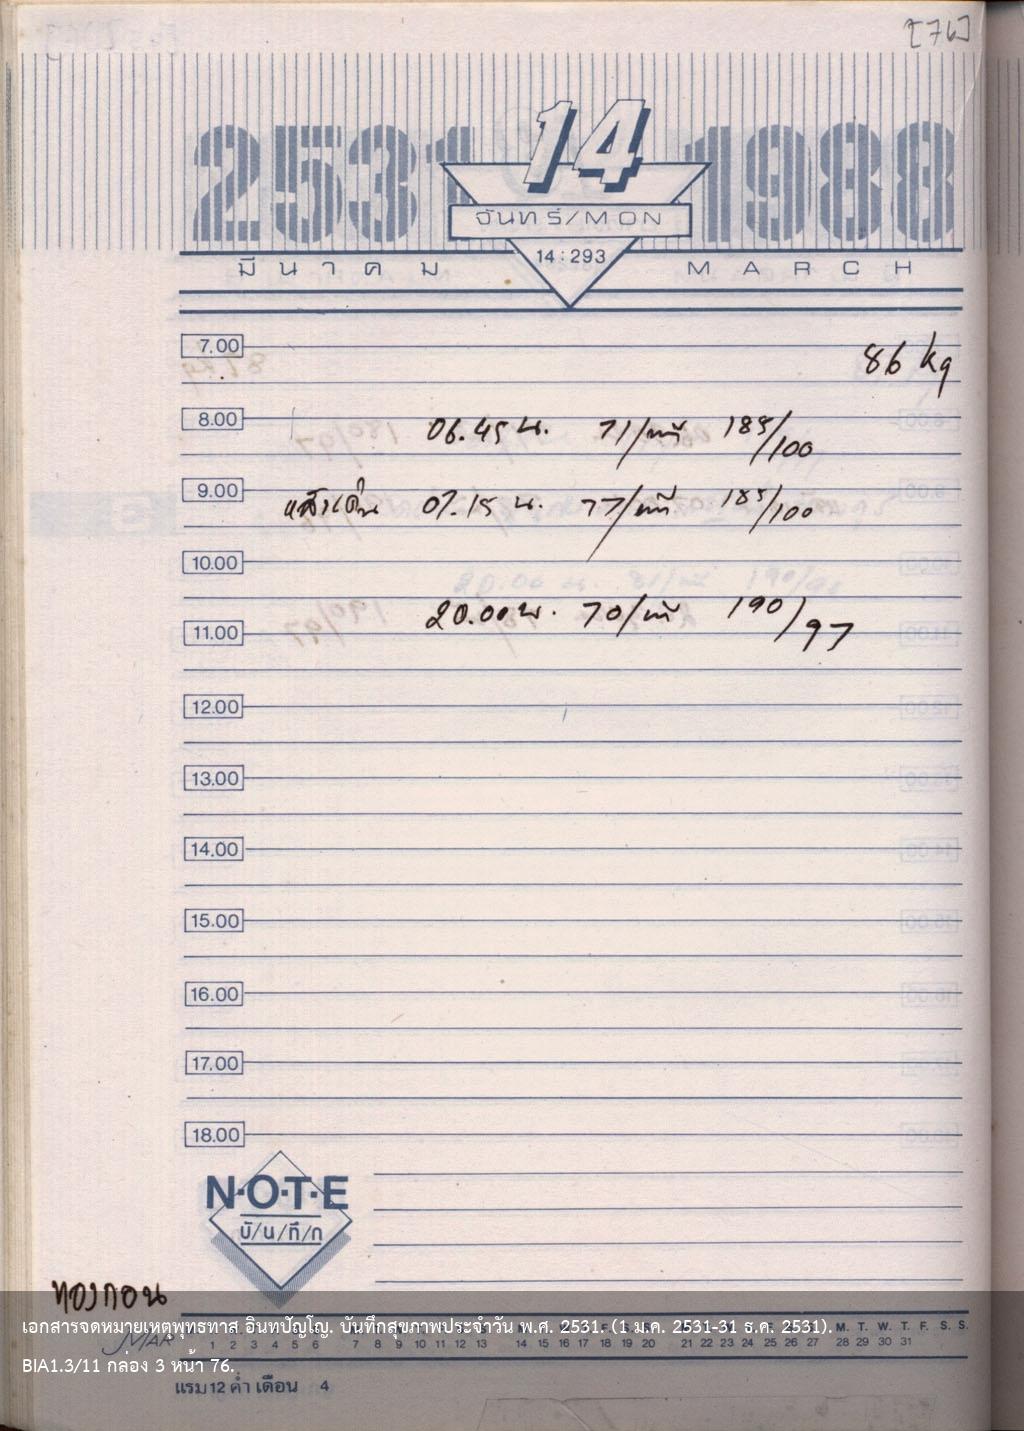 [76]
2531 14 1988
จันทร์/MON
มีนาคม 14:293 MARCH
7.00
86 kg
8.00
06.45 น. 71/นาที 185/100
9.00
หลังเดิน 07.15 น. 77/นาที 185/100
10.00
20.00 น. 70/นาที 190/97
11.00
12.00
13.00
14.00
15.00
16.00
17.00
18.00
N·O·T·E
บั/น/ทึ/ก
ทองกอน
เอกสารจดหมายเหตุพุทธทาส อินทปัญโญ. บันทึกสุขภาพประจำวัน พ.ศ. 2531. (1 ม.ค. 2531-31 ธ.ค. 2531).
MAR 1 2 3 4 5 6 7 8 9 10 11 12 13 14 15 16 17 18 19 20 21 22 23 24 25 26 27 28 29 30 31
BIA1.3/11 กล่อง 3 หน้า 76.
แรม 12 ค่ำ เดือน 4